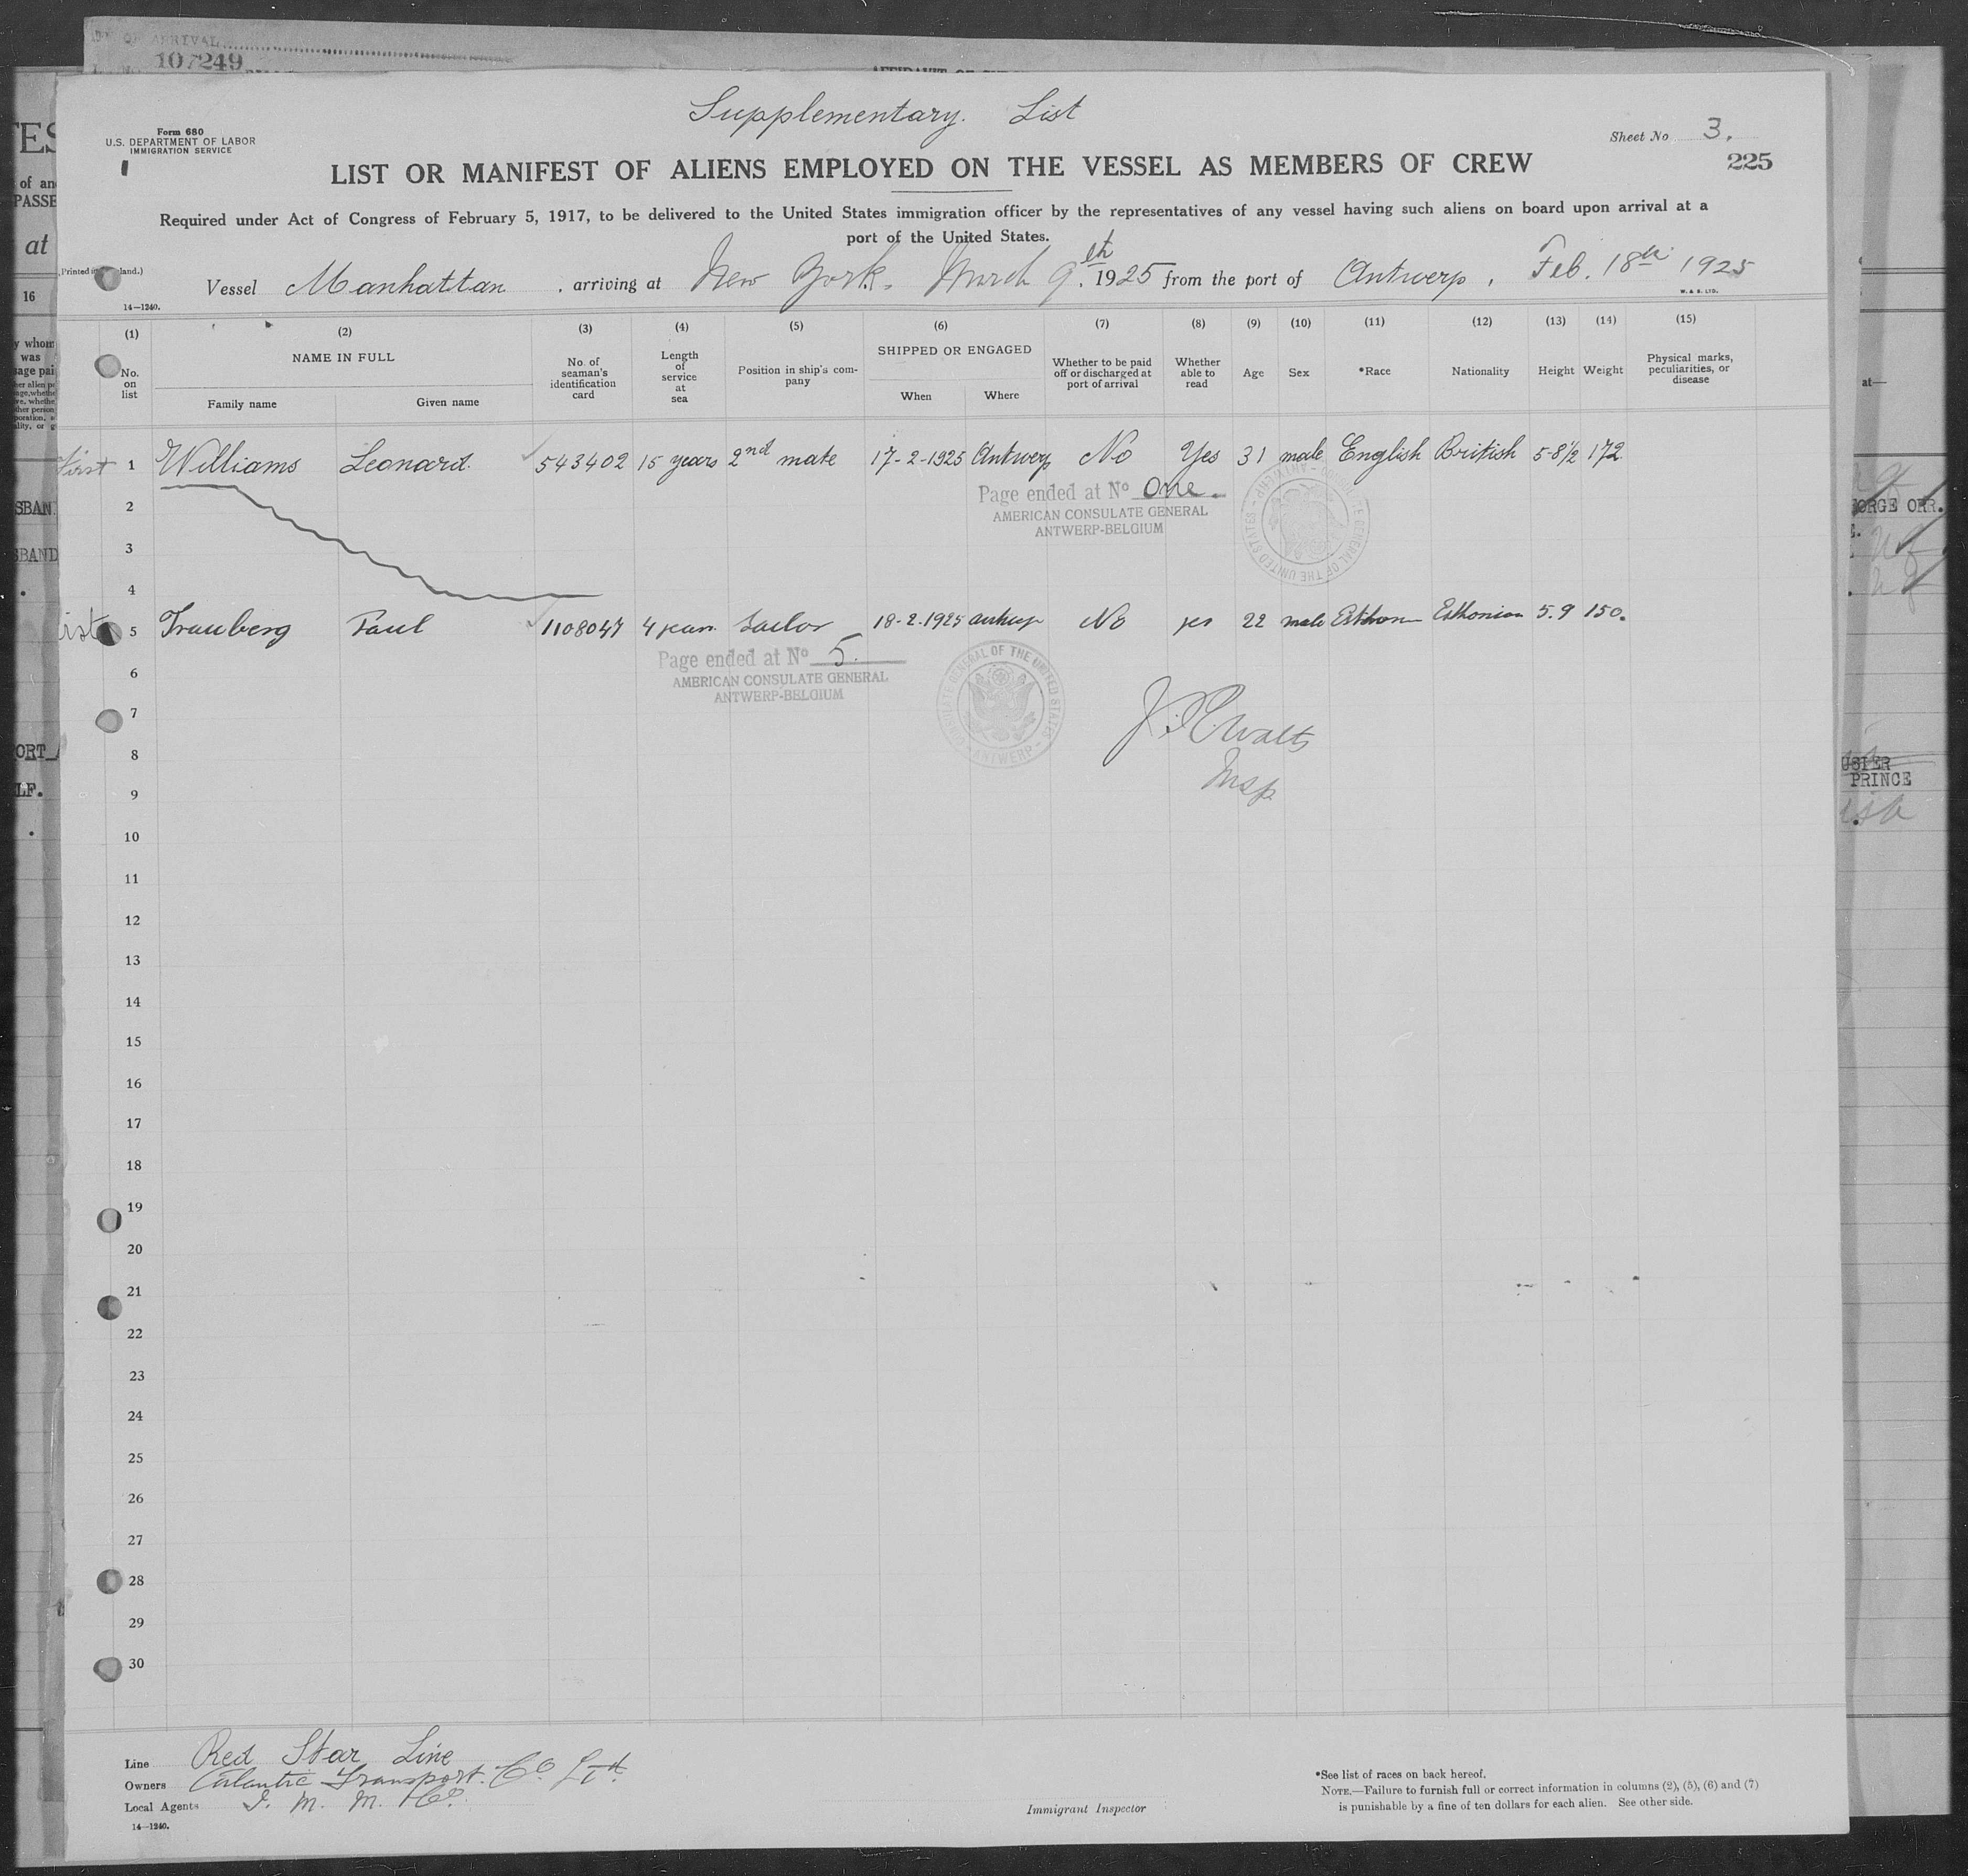 107249
Supplementary. List
Form 680
U.S. DEPARTMENT OF LABOR
IMMIGRATION SERVICE
Sheet No 3.
225
LIST OR MANIFEST OF ALIENS EMPLOYED ON THE VESSEL AS MEMBERS OF CREW
Required under Act of Congress of February 5, 1917, to be delivered to the United States immigration officer by the representatives of any vessel having such aliens on board upon arrival at a
port of the United States.
Vessel Manhattan, arriving at New York. March 9th. 1925 from the port of Antwerp, Feb. 18th 1925
W. & S. LTD.
14—1240.
(1) (2) (3) (4) (5) (6) (7) (8) (9) (10) (11) (12) (13) (14) (15)
No. on list
NAME IN FULL
Family name
Given name
No. of seaman's identification card
Length of service at sea
Position in ship's company
SHIPPED OR ENGAGED
When
Where
Whether to be paid off or discharged at port of arrival
Whether able to read
Age
Sex
*Race
Nationality
Height
Weight
Physical marks, peculiarities, or disease
first 1 Williams Leonard. 543402 15 years 2nd mate 17-2-1925 Antwerp No Yes 31 male English British 5-8½ 172
Page ended at No One.
AMERICAN CONSULATE GENERAL
ANTWERP-BELGIUM
2
3
4
5 Trauberg Paul 1108047 4 years Sailor 18-2-1925 Antwerp No yes 22 male Esthonian 5.9 150.
Page ended at No 5.
AMERICAN CONSULATE GENERAL
ANTWERP-BELGIUM
CONSULATE GENERAL OF THE UNITED STATES - ANTWERP -
6
7
Insp
8
9
10
11
12
13
14
15
16
17
18
19
20
21
22
23
24
25
26
27
28
29
30
Line Red Star Line
Owners Atlantic Transport. Co. Ltd.
Local Agents I. M. M. Co.
14—1240.
Immigrant Inspector
*See list of races on back hereof.
NOTE.—Failure to furnish full or correct information in columns (2), (5), (6) and (7)
is punishable by a fine of ten dollars for each alien. See other side.
PRINCE